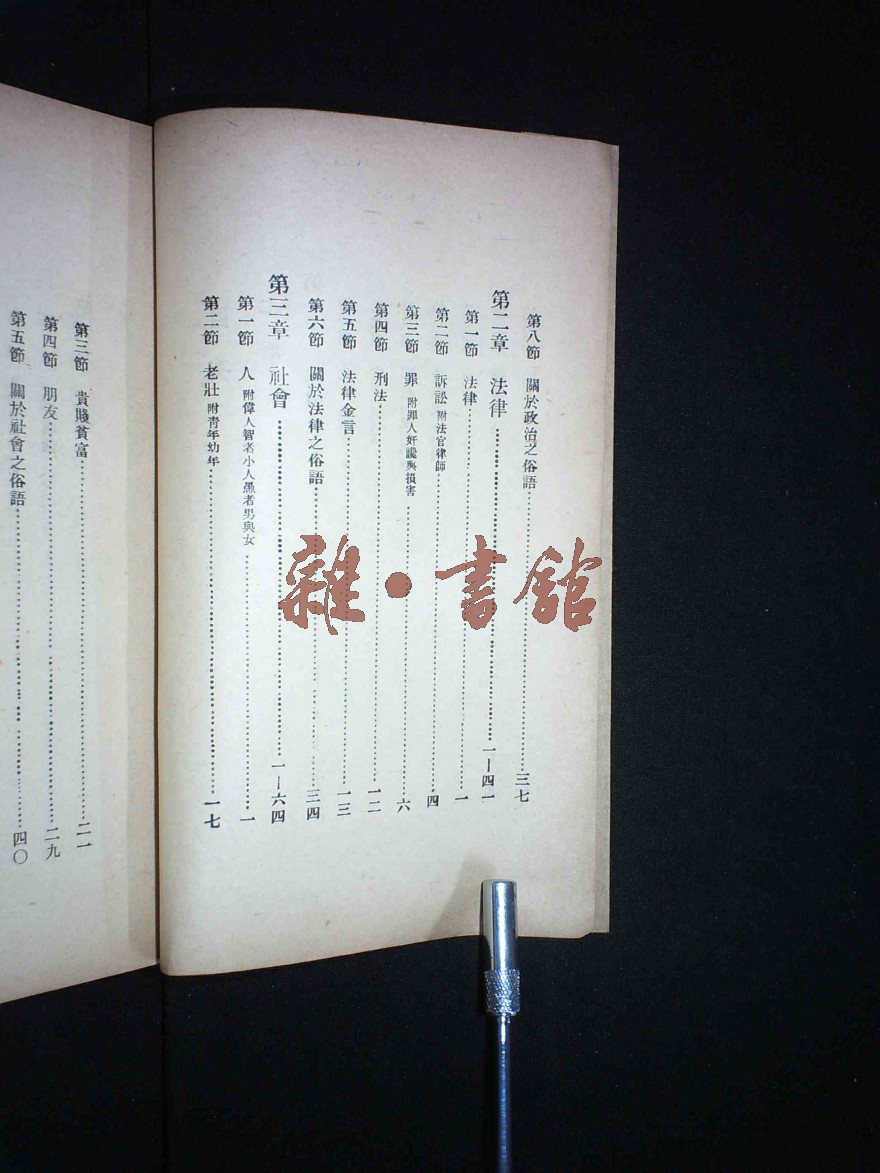 第八節　關於政治之俗語……三七
第二章　法律……一—四一
第一節　法律……一
第二節　訴訟 附法官律師……四
第三節　罪 附罪人奸讒與損害……六
第四節　刑法……一二
第五節　法律金言……一三
第六節　關於法律之俗語……三四
第三章　社會……一—六四
第一節　人 附偉人智者小人愚者男與女……一
第二節　老壯 附靑年幼年……一七
第三節　貴賤貧富……二一
第四節　朋友……二九
第五節　關於社會之俗語……四〇
雜·書館